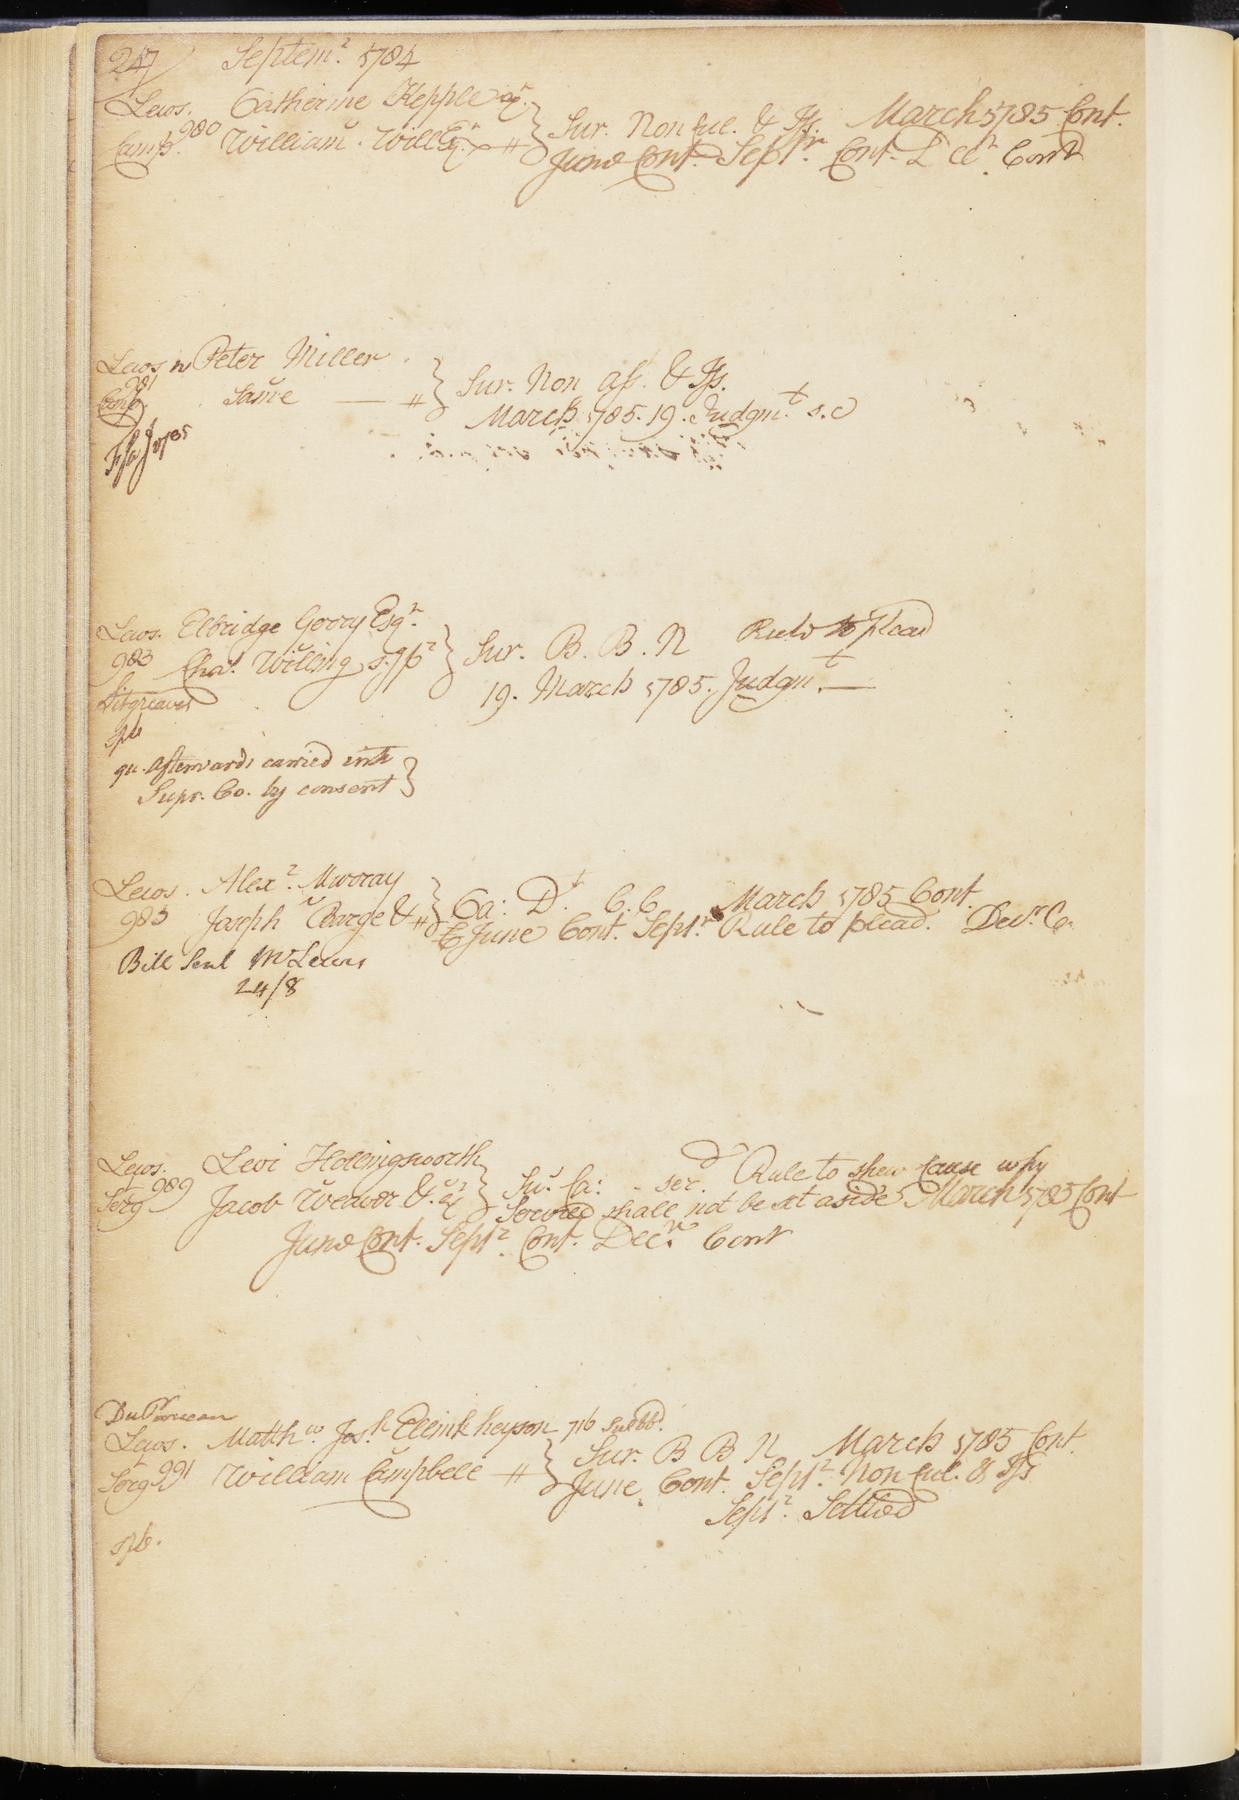 247 Septemr. 1784
Lewis. Catherine Kepple
980 William Will Sur. Non Cul. & Iss. March 1785 Cont.
Camp. June Cont. Septr. Cont. Decr. Cont
Lewis Peter Miller
981 Same Sur. Non ass. & Iss.
March 1785. 19. Judgmt. s.c
Lewis. Elbridge Gerry Esqr.
983 Chas. Willing s. Sur. B. B. N Rule to plead
Sitgreaves 19. March 1785. Judgmt.
qu. afterwards carried into
Supr. Co. by consent
Lewis. Alexr. Murray
983 Jasph Barge & Ca: Dt. C.C March 1785 Cont.
June Cont. Septr. Rule to plead. Decr. Co.
Bill Sent Mr Lewis
24/8
Lewis. Levi Hollingsworth
989 Jacob Weaver Rule to shew Cause why
Serg shall not be set aside March 1785 Cont
June Cont. Septr. Cont. Decr. Cont
DuPonceau
Lewis. Matthw. Josh Elcink heyson
Serg 991 William Campbell Sur. B B N March 1785 Cont.
June Cont. Septr. Non Cul. & Iss
Septr. Settled